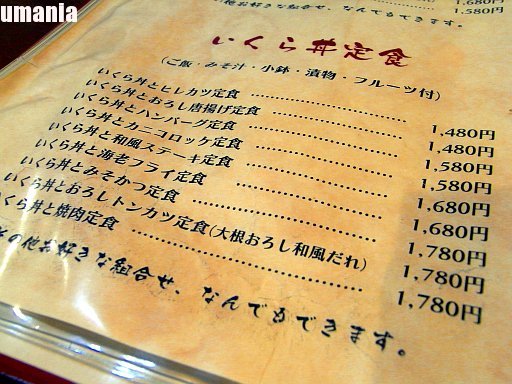 umania
1,680円
の他お好きな組合せ、なんでもできます。
1,580円
いくら丼定食
(ご飯・みそ汁・小鉢・漬物・フルーツ付)
いくら丼とヒレカツ定食 1,480円
いくら丼とおろし唐揚げ定食 1,480円
いくら丼とハンバーグ定食 1,580円
いくら丼とカニコロッケ定食 1,580円
いくら丼と和風ステーキ定食 1,680円
いくら丼と海老フライ定食 1,680円
いくら丼とみそかつ定食 1,780円
いくら丼とおろしトンカツ定食(大根おろし和風だれ) 1,780円
いくら丼と焼肉定食 1,780円
その他お好きな組合せ、なんでもできます。